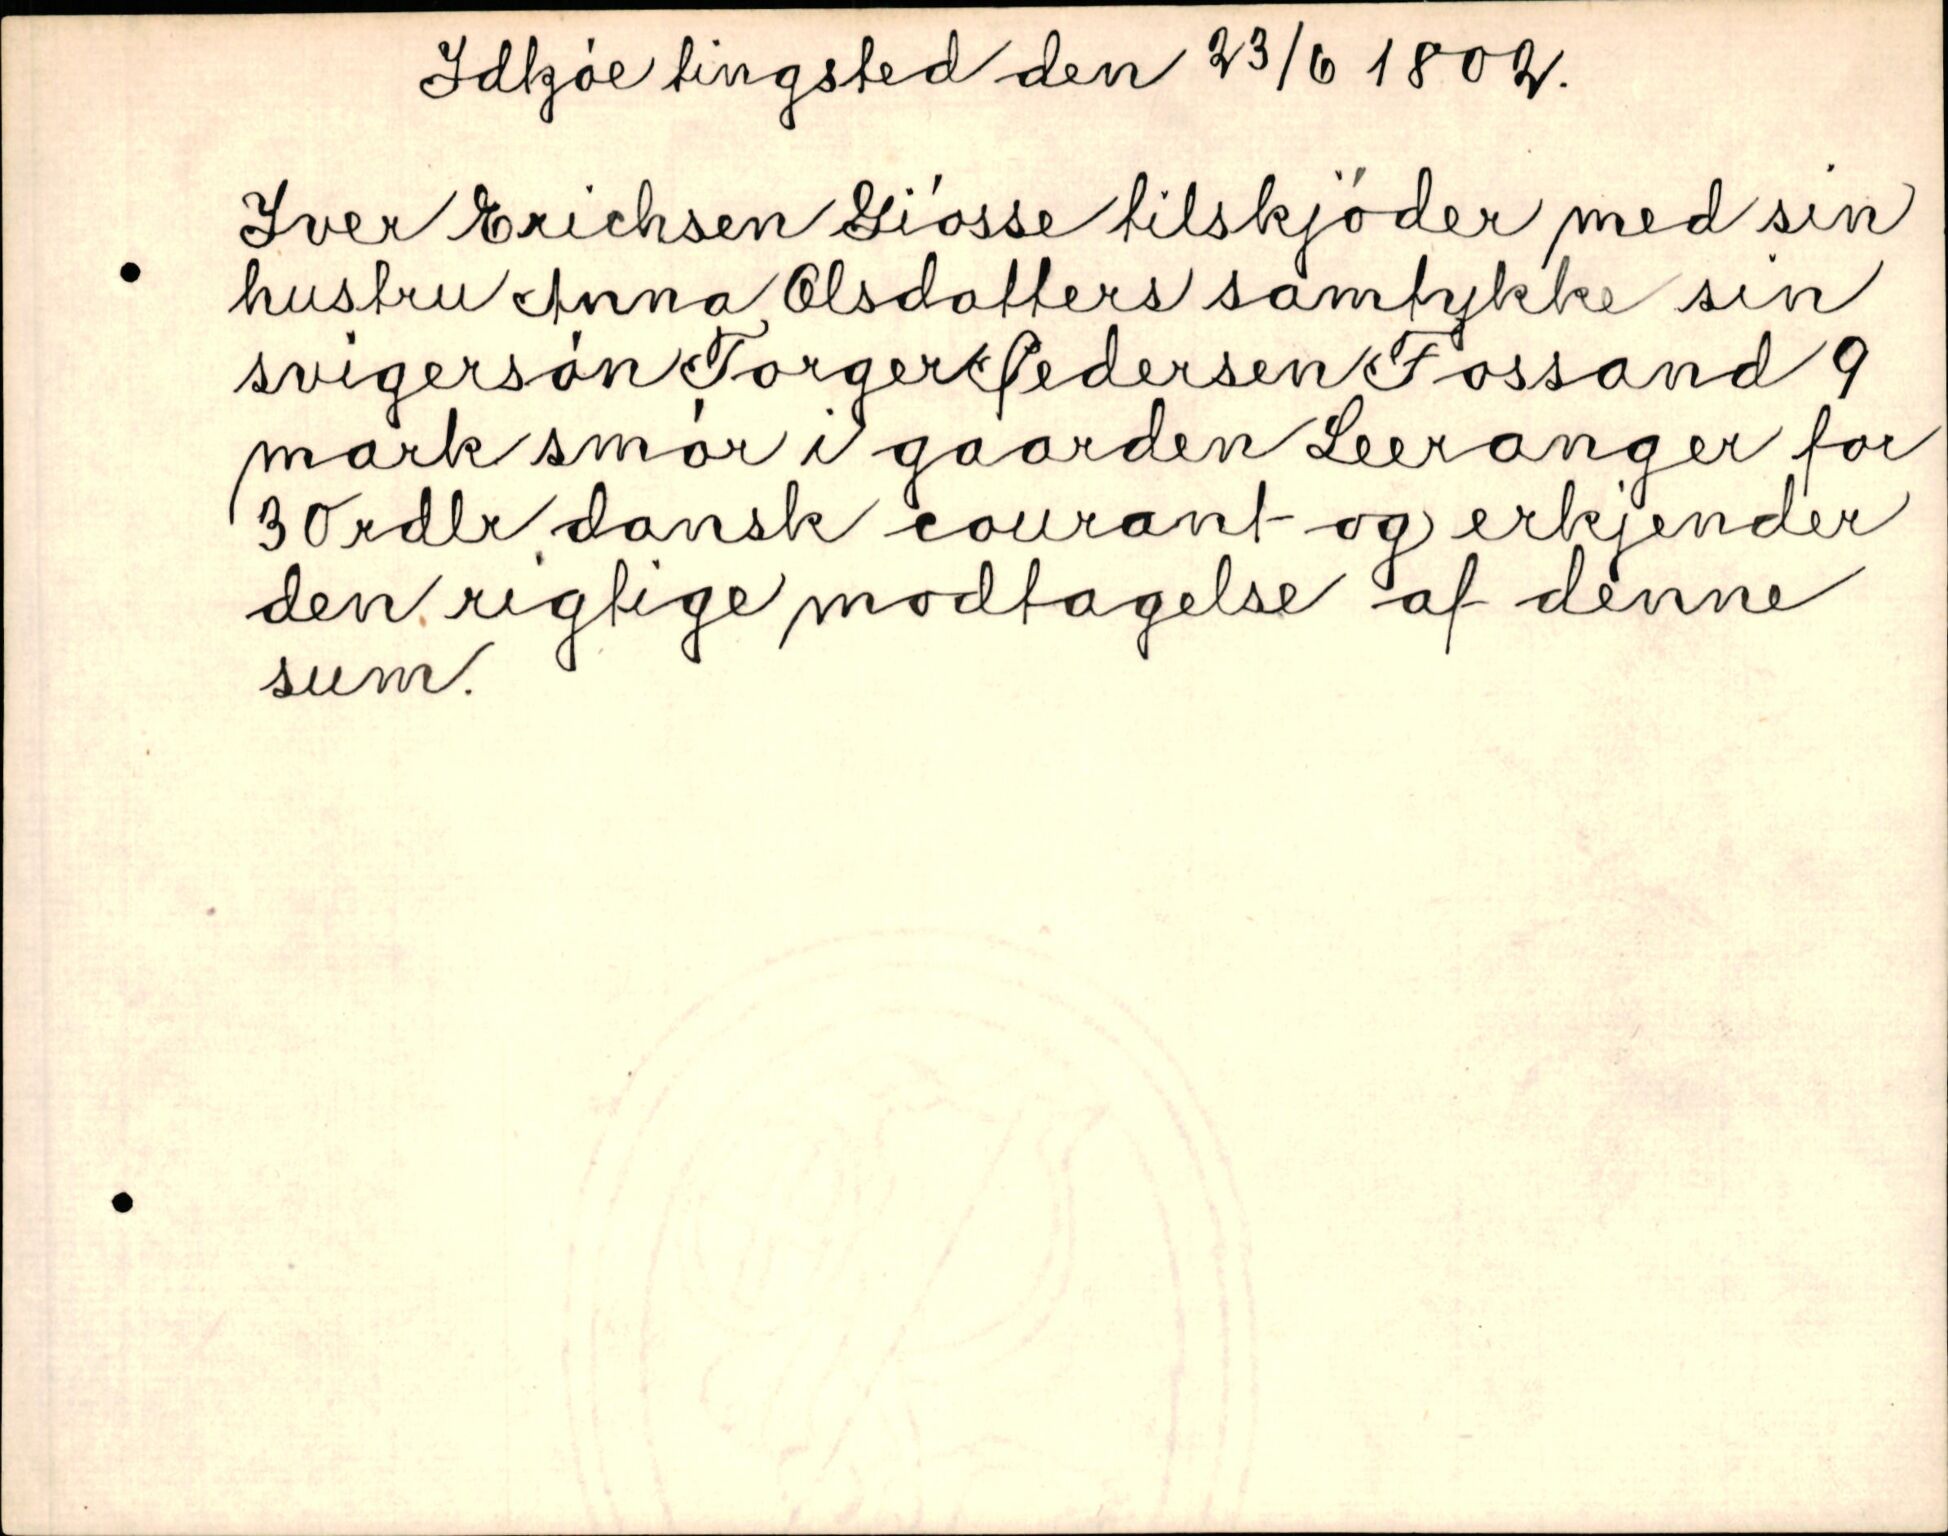 Idkjöe tingsted den 23/6 1802.
Iver Erichsen Giösse tilskjöder med sin
hustru Anna Olsdatters samtykke sin
svigersön Torger Pedersen Fossand 9
mark smör i gaarden Leeranger for
30 rdlr dansk courant og erkjender
den rigtige modtagelse af denne
sum.